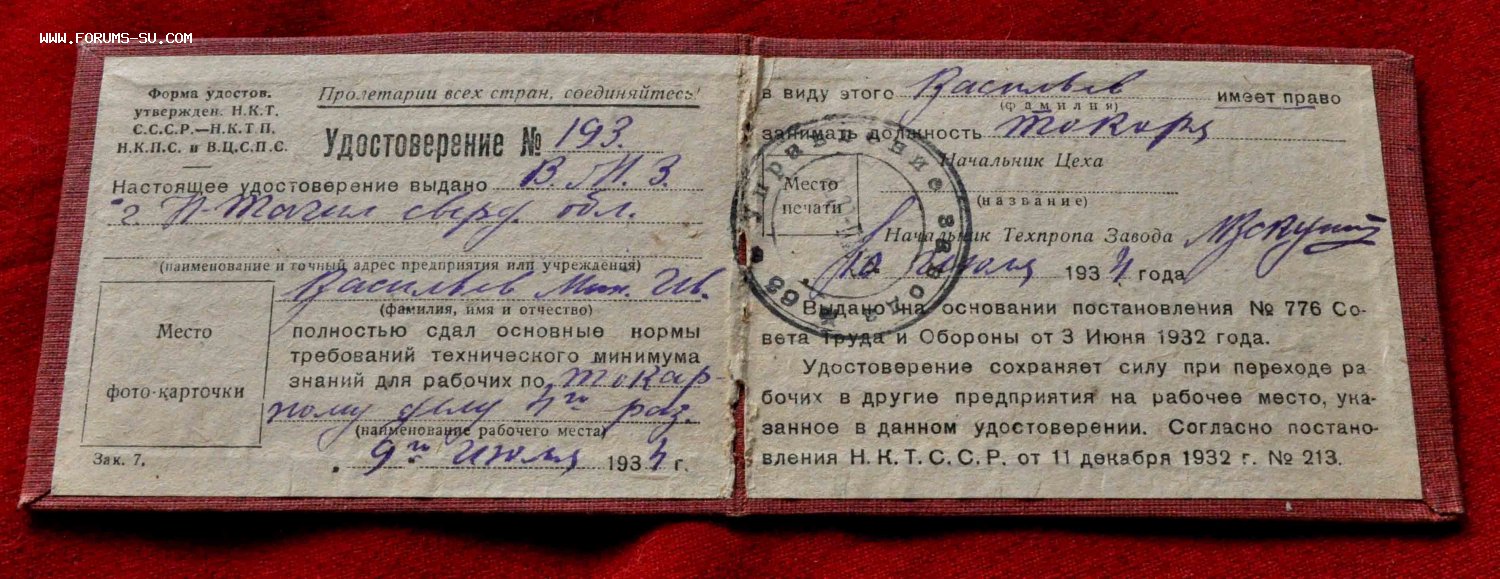 WWW.FORUMS-SU.COM
Форма удостов.
утвержден. Н.К.Т.
С.С.С.Р.—Н.К.Т.П.
Н.К.П.С. и В.Ц.С.П.С.
Пролетарии всех стран, соединяйтесь!
Удостоверение № 193.
Настоящее удостоверение выдано В.М.З.
г Н-Тагил сверд обл.
(наименование и точный адрес предприятия или учреждения)
Васильев Мих. Ив.
(фамилия, имя и отчество)
Место
фото-карточки
полностью сдал основные нормы
требований технического минимума
знаний для рабочих по токар-
ному делу 4го раз.
(наименование рабочего места)
9го Июля 1934 г.
Зак. 7.
в виду этого Васильев имеет право
(фамилия)
занимать должность токаря
Начальник Цеха
(название)
Место
печати
Управление завода № 63
Начальник Техпропа Завода
10 Июля 1934 года
Выдано на основании постановления № 776 Со-
вета труда и Обороны от 3 Июня 1932 года.
Удостоверение сохраняет силу при переходе ра-
бочих в другие предприятия на рабочее место, ука-
занное в данном удостоверении. Согласно постано-
вления Н.К.Т.С.С.Р. от 11 декабря 1932 г. № 213.